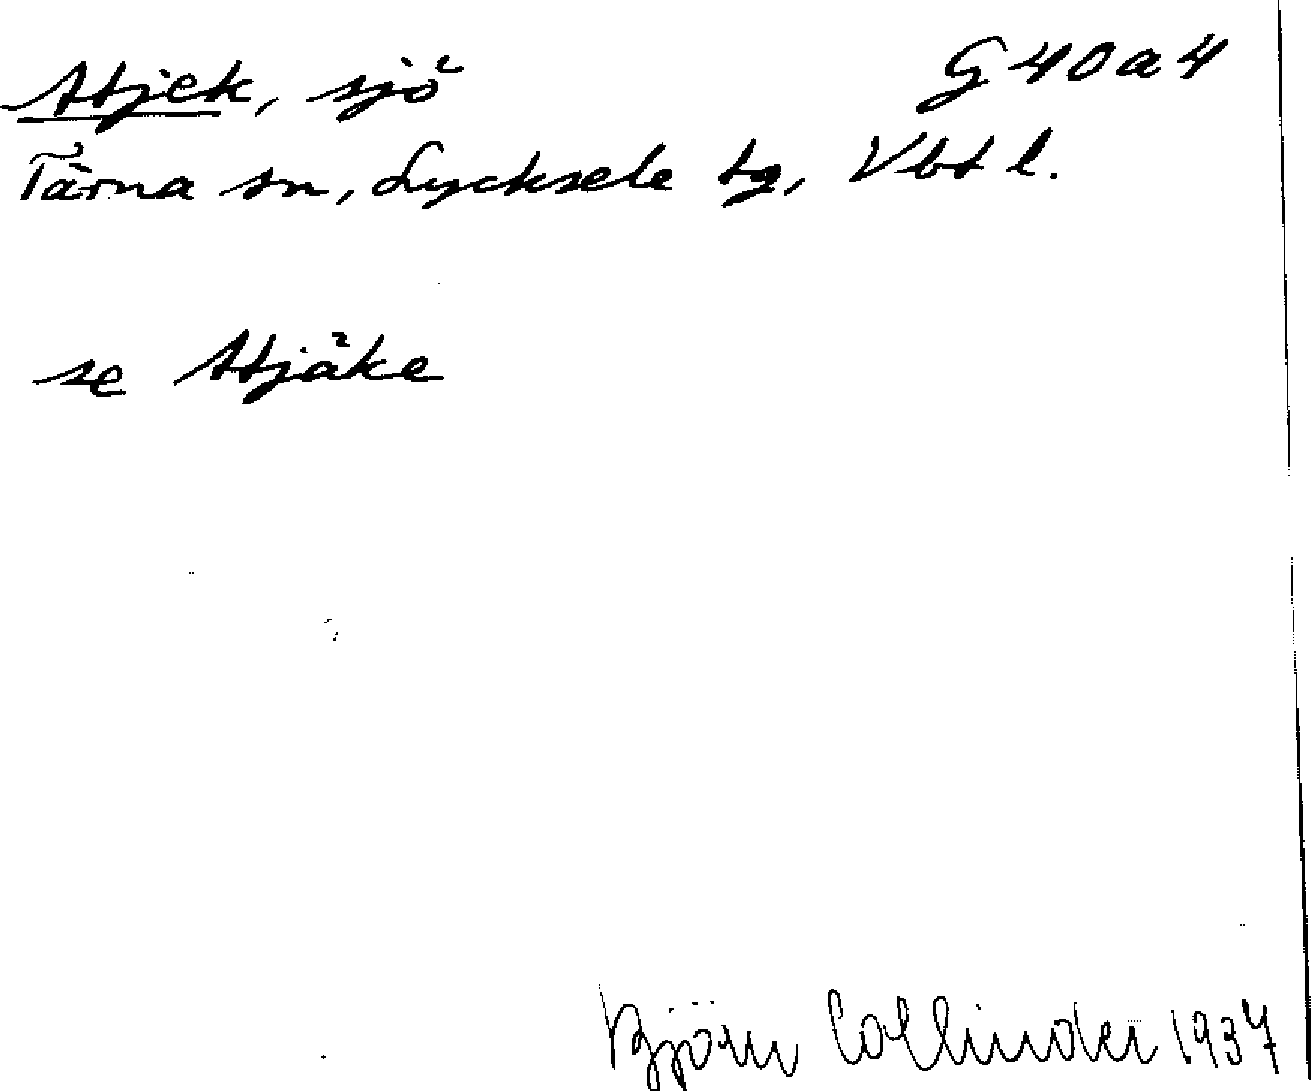 Atjek, sjö G 40 a 4
Tärna sn, Lycksele tg, Vbt l.
se Atjäke
Björn Collinder 1937